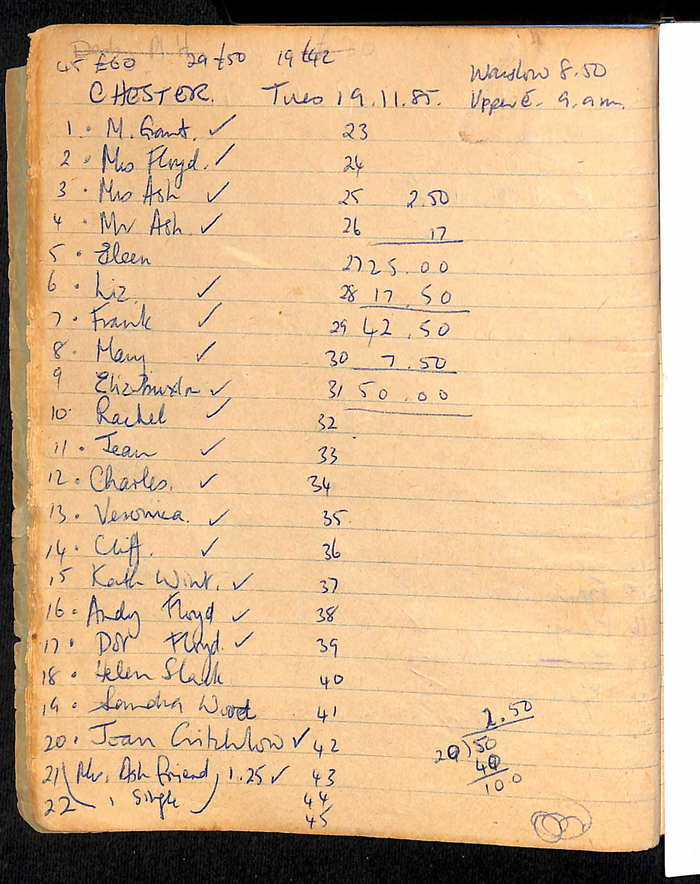 45 £60 29 £50 19 £42
Warslow 8.50
CHESTER. Tues 19.11.85. Upper E. 9.a.m.
1. M. Grant. ✓ 23
2. Mrs Floyd. ✓ 24
3. Mrs Ash ✓ 25 2.50
4. Mr Ash. ✓ 26 17
5. Eileen 27 25.00
6. Liz. ✓ 28 17.50
7. Frank ✓ 29 42.50
8. Mary ✓ 30 7.50
9 Eliz Buxton ✓ 31 50.00
10. Rachel ✓ 32
11. Jean ✓ 33
12. Charles. ✓ 34
13. Veronica. ✓ 35.
14. Cliff. ✓ 36
15 Kath Wint. ✓ 37
16. Andy Floyd ✓ 38
17. Dot Floyd. ✓ 39
18. Helen Slack 40
19. Sandra Wood 41
20. Joan Critchlow ✓ 42
21 Mr. Ash friend, 1.25 ✓ 43
22 1 Single 44
45
2.50
20)50
40
100